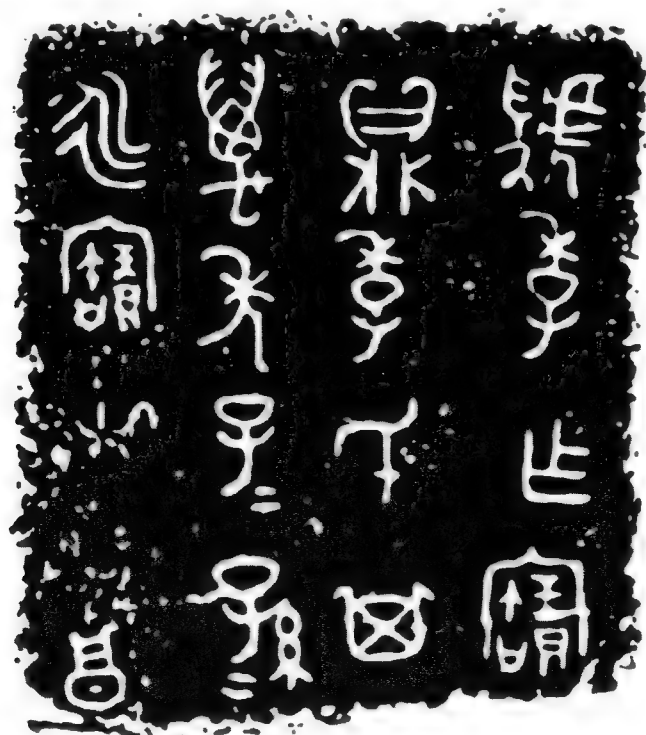 季乍寶
鼎季其
萬年子＝孫＝
永寶用享